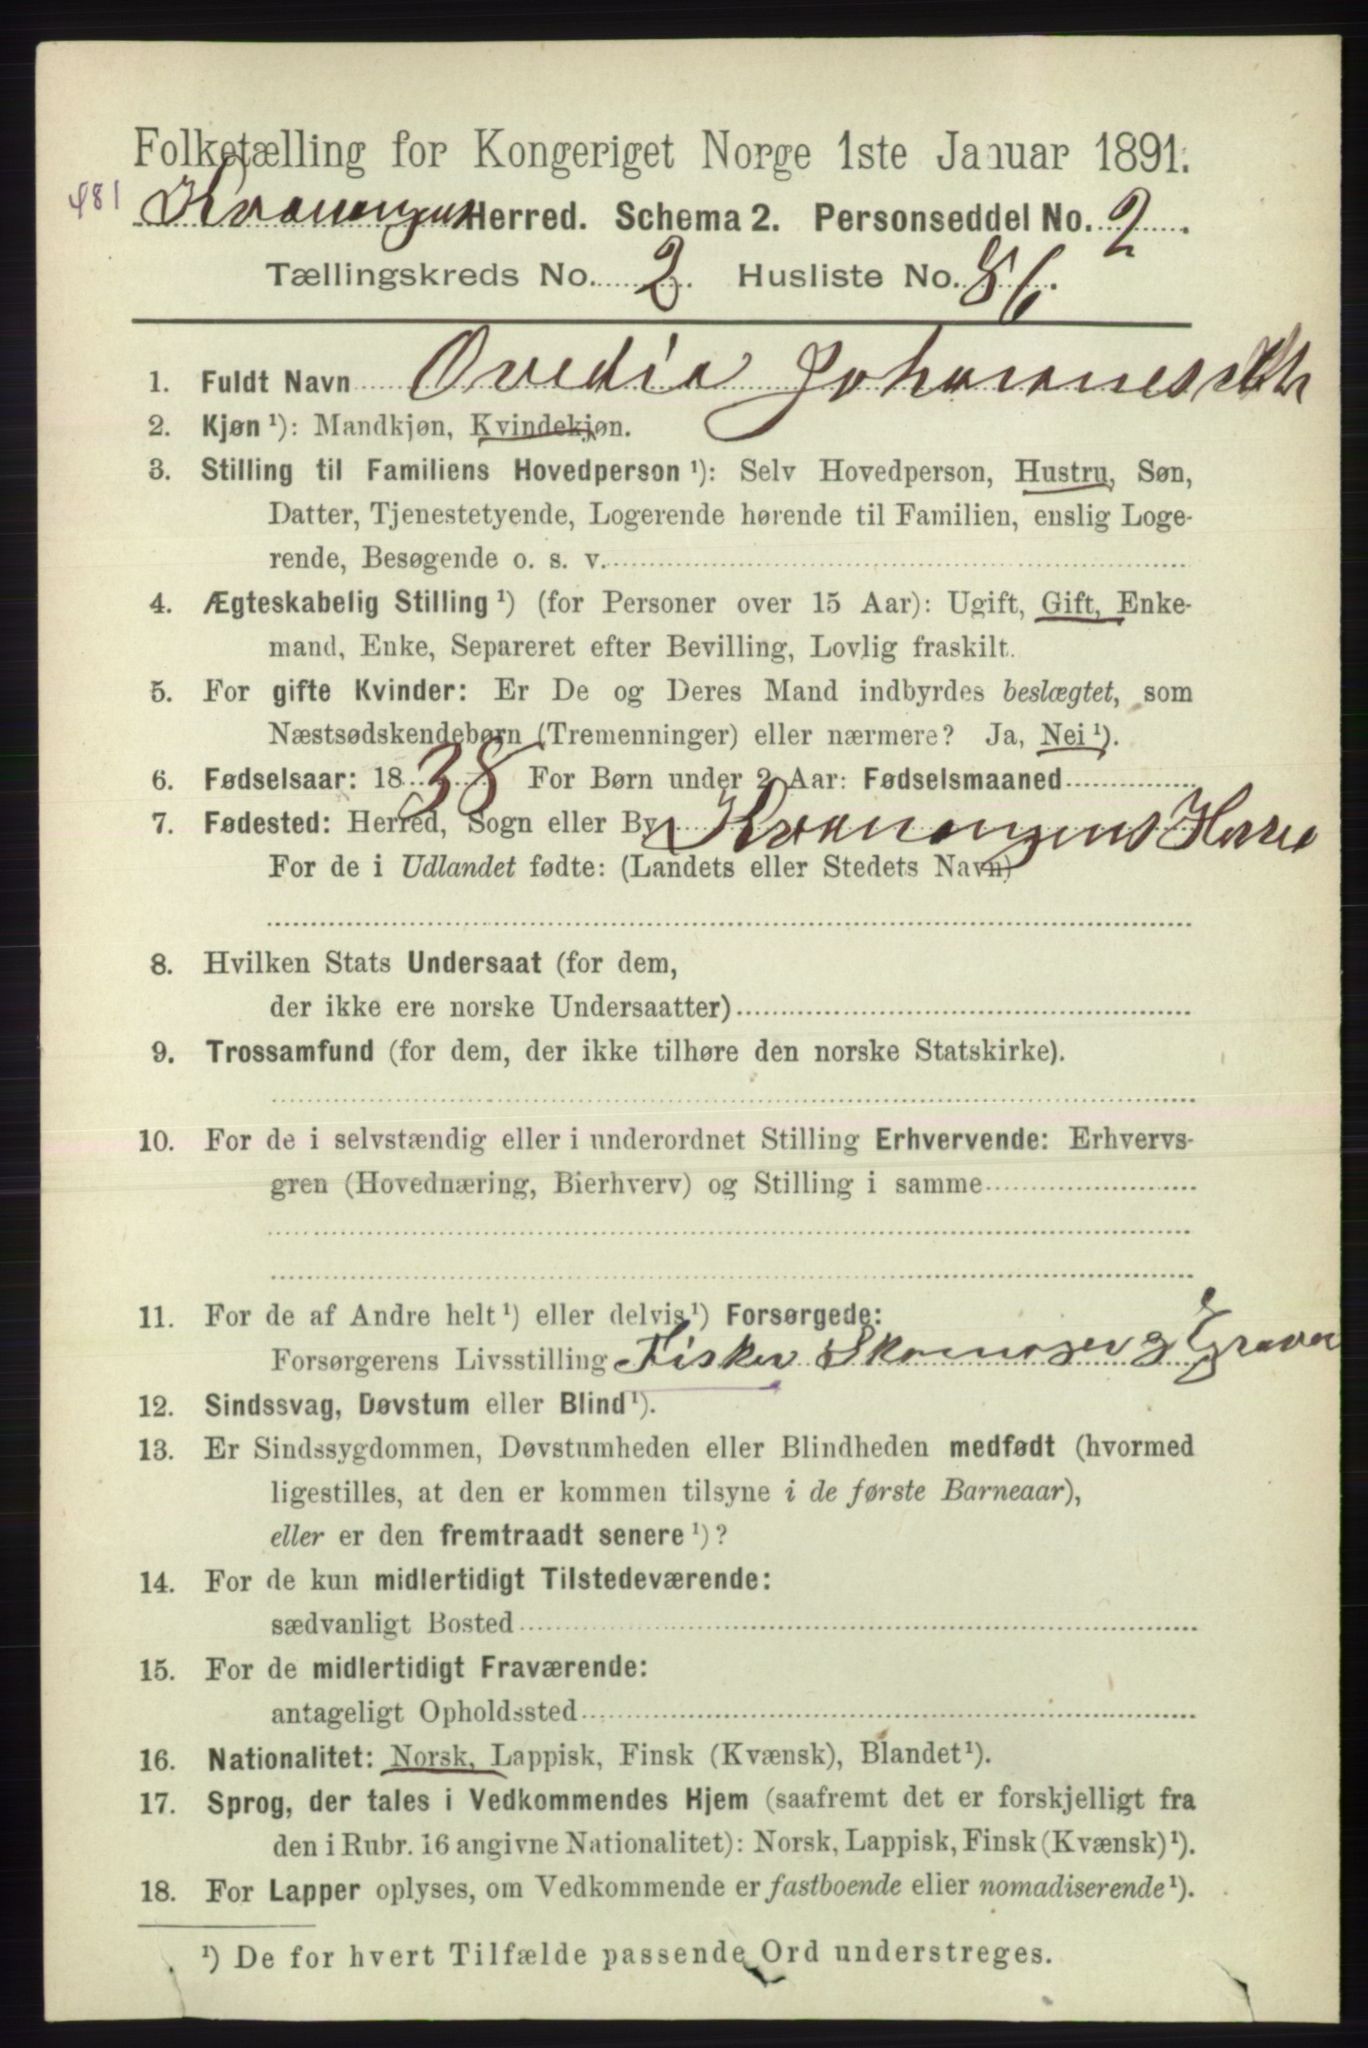 Folketælling for Kongeriget Norge 1ste Januar 1891.
481 Kvænangen Herred. Schema 2. Personseddel No. 2.
Tællingskreds No. 2. Husliste No. 86.
1. Fuldt Navn Ovedia Johannesdtr
2. Kjøn ¹): Mandkjøn, Kvindekjøn.
3. Stilling til Familiens Hovedperson ¹): Selv Hovedperson, Hustru, Søn,
Datter, Tjenestetyende, Logerende hørende til Familien, enslig Loge-
rende, Besøgende o. s. v.
4. Ægteskabelig Stilling ¹) (for Personer over 15 Aar): Ugift, Gift, Enke-
mand, Enke, Separeret efter Bevilling, Lovlig fraskilt.
5. For gifte Kvinder: Er De og Deres Mand indbyrdes beslægtet, som
Næstsødskendebørn (Tremenninger) eller nærmere? Ja, Nei ¹).
6. Fødselsaar: 1838 For Børn under 2 Aar: Fødselsmaaned
7. Fødested: Herred, Sogn eller By Kvænangens Herred
For de i Udlandet fødte: (Landets eller Stedets Navn)
8. Hvilken Stats Undersaat (for dem,
der ikke ere norske Undersaatter)
9. Trossamfund (for dem, der ikke tilhøre den norske Statskirke).
10. For de i selvstændig eller i underordnet Stilling Erhvervende: Erhvervs-
gren (Hovednæring, Bierhverv) og Stilling i samme
11. For de af Andre helt ¹) eller delvis ¹) Forsørgede:
Forsørgerens Livsstilling Fisker Skomager & Graver
12. Sindssvag, Døvstum eller Blind ¹).
13. Er Sindssygdommen, Døvstumheden eller Blindheden medfødt (hvormed
ligestilles, at den er kommen tilsyne i de første Barneaar),
eller er den fremtraadt senere ¹)?
14. For de kun midlertidigt Tilstedeværende:
sædvanligt Bosted
15. For de midlertidigt Fraværende:
antageligt Opholdssted
16. Nationalitet: Norsk, Lappisk, Finsk (Kvænsk), Blandet ¹).
17. Sprog, der tales i Vedkommendes Hjem (saafremt det er forskjelligt fra
den i Rubr. 16 angivne Nationalitet): Norsk, Lappisk, Finsk (Kvænsk) ¹).
18. For Lapper oplyses, om Vedkommende er fastboende eller nomadiserende ¹).
¹) De for hvert Tilfælde passende Ord understreges.